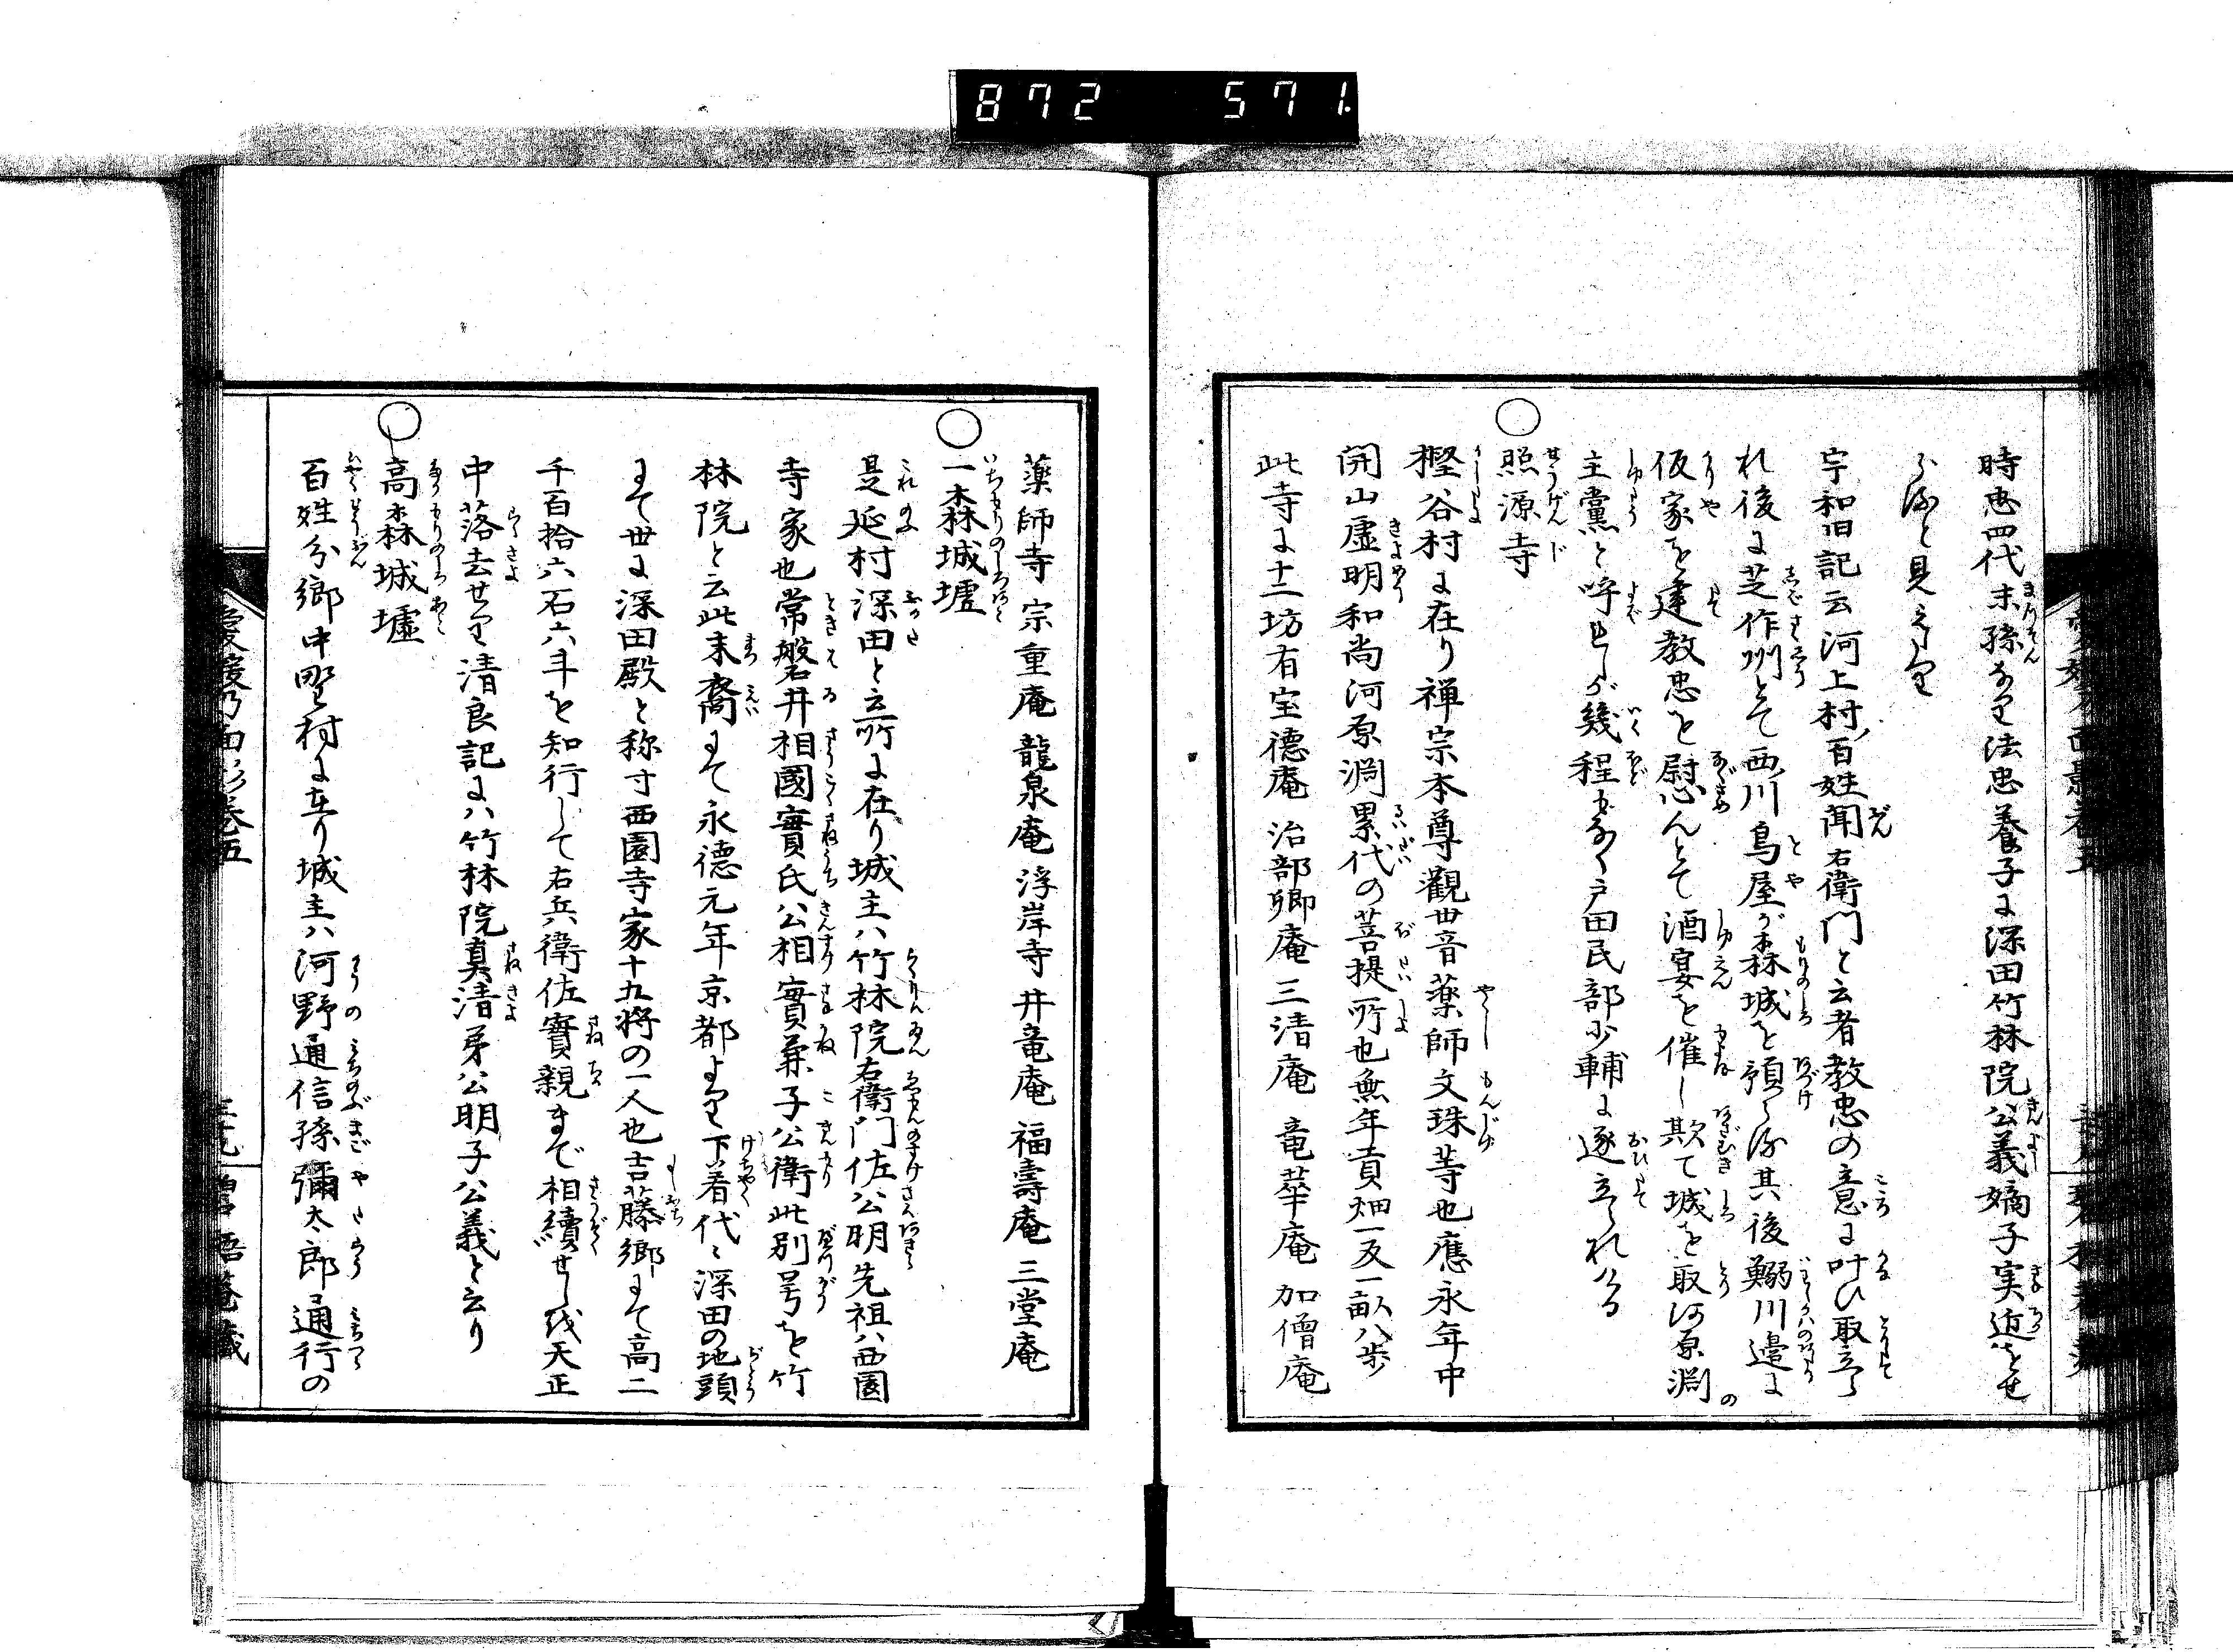 872 571
時忠四代末孫なり法忠養子に深田竹林院公義嫡子実近をせ
らると見えたり
宇和旧記云河上村百姓聞右衛門と云者教忠の意に叶ひ取立ら
れ後に芝作州とて西川鳥屋が森城を預らる其後鰯川邉に
仮家を建教忠を慰んとて酒宴を催し欺て城を取河原渕の
主黨と呼れしが幾程もなく戸田民部少輔に逐立られける
○照源寺
樫谷村に在り禅宗本尊觀世音薬師文珠等也應永年中
開山虚明和尚河原渕累代の菩提所也無年貢畑一反一畝八歩
此寺に十二坊有宝徳庵 治部卿庵 三清庵 竜華庵 加僧庵
薬師寺 宗重庵 龍泉庵 浮岸寺 井竜庵 福壽庵 三堂庵
○一森城墟
是延村深田と云所に在り城主ハ竹林院右衛門佐公明先祖ハ西園
寺家也常盤井相國實氏公相實兼子公衛此別号を竹
林院と云此末裔にて永徳元年京都より下着代々深田の地頭
にて世に深田殿と称す西園寺家十九将の一人也吉藤郷にて高二
千百拾六石六斗を知行して右兵衛佐實親まで相續せし伐天正
中落去せり清良記にハ竹林院真清弟公明子公義と云り
○高森城墟
百姓分郷中野村に在り城主ハ河野通信孫彌太郎通行の
愛媛乃面影巻五